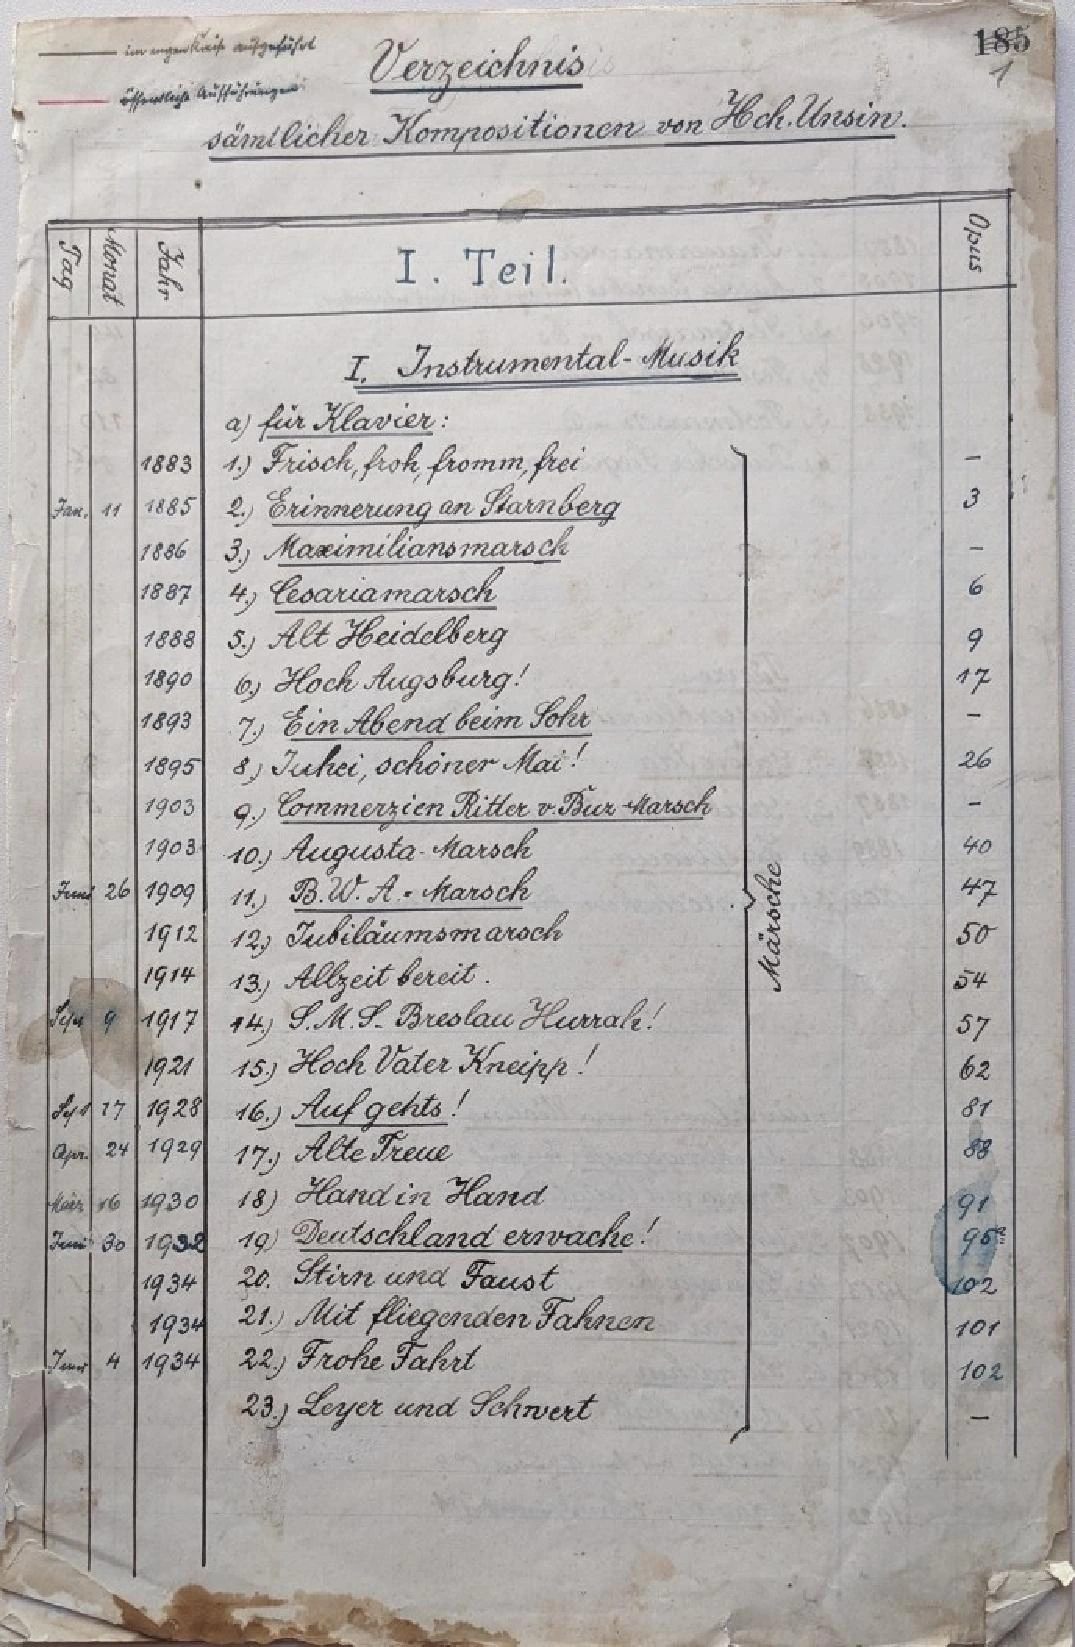 im engen Kreise aufgeführt
öffentliche Aufführungen
185
1
Verzeichnis
sämtlicher Kompositionen von Hch. Unsin.
Tag Monat Jahr I. Teil. Opus
I. Instrumental-Musik
a) für Klavier:
1883 1.) Frisch, froh, fromm, frei –
Jan. 11 1885 2.) Erinnerung an Starnberg 3
1886 3.) Maximiliansmarsch –
1887 4.) Cesariamarsch 6
1888 5.) Alt Heidelberg 9
1890 6.) Hoch Augsburg! 17
1893 7.) Ein Abend beim Sohr –
1895 8.) Juhei, schöner Mai! 26
1903 9.) Commerzien Ritter v. Buz-Marsch –
1903 10.) Augusta-Marsch 40
Juni 26 1909 11.) B. W. A.-Marsch 47
1912 12.) Jubiläumsmarsch 50
1914 13.) Allzeit bereit. 54
9 1917 14.) S. M. S. Breslau Hurrah! 57
1921 15.) Hoch Vater Kneipp! 62
1928 16.) Auf gehts! 81
Apr. 24 1929 17.) Alte Treue 88
März 16 1930 18) Hand in Hand 91
Juni 30 1932 19) Deutschland erwache! 95
1934 20. Stirn und Faust 102
1934 21.) Mit fliegenden Fahnen 101
4 1934 22.) Frohe Fahrt 102
23.) Leyer und Schwert –
Märsche